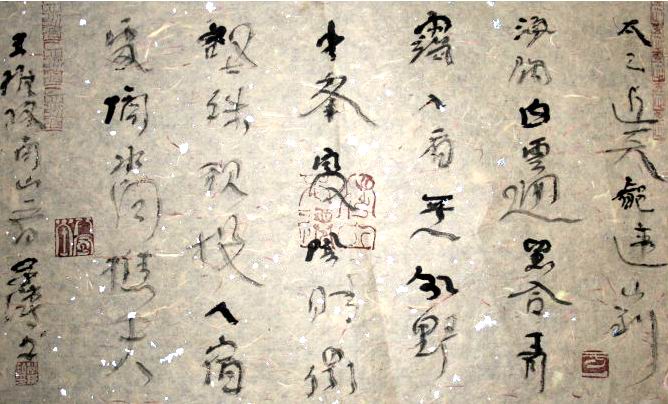 太乙近天都連山到
海隅白雲迴望合青
靄入看無分野
中峰變陰晴眾
壑殊欲投人宿
處隔水問樵夫
王維終南山一首 書